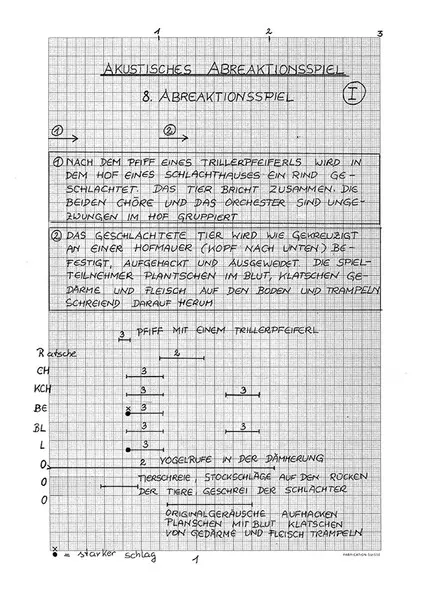 1 2 3
AKUSTISCHES ABREAKTIONSSPIEL
8. ABREAKTIONSSPIEL I
1 2
1 NACH DEM PFIFF EINES TRILLERPFEIFERLS WIRD IN
DEM HOF EINES SCHLACHTHAUSES EIN RIND GE-
SCHLACHTET. DAS TIER BRICHT ZUSAMMEN. DIE
BEIDEN CHÖRE UND DAS ORCHESTER SIND UNGE-
ZWUNGEN IM HOF GRUPPIERT
2 DAS GESCHLACHTETE TIER WIRD WIE GEKREUZIGT
AN EINER HOFMAUER (KOPF NACH UNTEN) BE-
FESTIGT, AUFGEHACKT UND AUSGEWEIDET. DIE SPIEL-
TEILNEHMER PLANTSCHEN IM BLUT, KLATSCHEN GE-
DÄRME UND FLEISCH AUF DEN BODEN UND TRAMPELN
SCHREIEND DARAUF HERUM
3 PFIFF MIT EINEM TRILLERPFEIFERL
Ratsche 2
CH 3
KCH 3 3
BE x 3
BL 3 3
L 3
O 2 VOGELRUFE IN DER DÄMMERUNG
O TIERSCHREIE, STOCKSCHLÄGE AUF DEN RÜCKEN
O DER TIERE, GESCHREI DER SCHLÄCHTER
ORIGINALGERÄUSCHE AUFHACKEN
PLANSCHEN MIT BLUT KLATSCHEN
VON GEDÄRME UND FLEISCH TRAMPELN
x = starker schlag 1